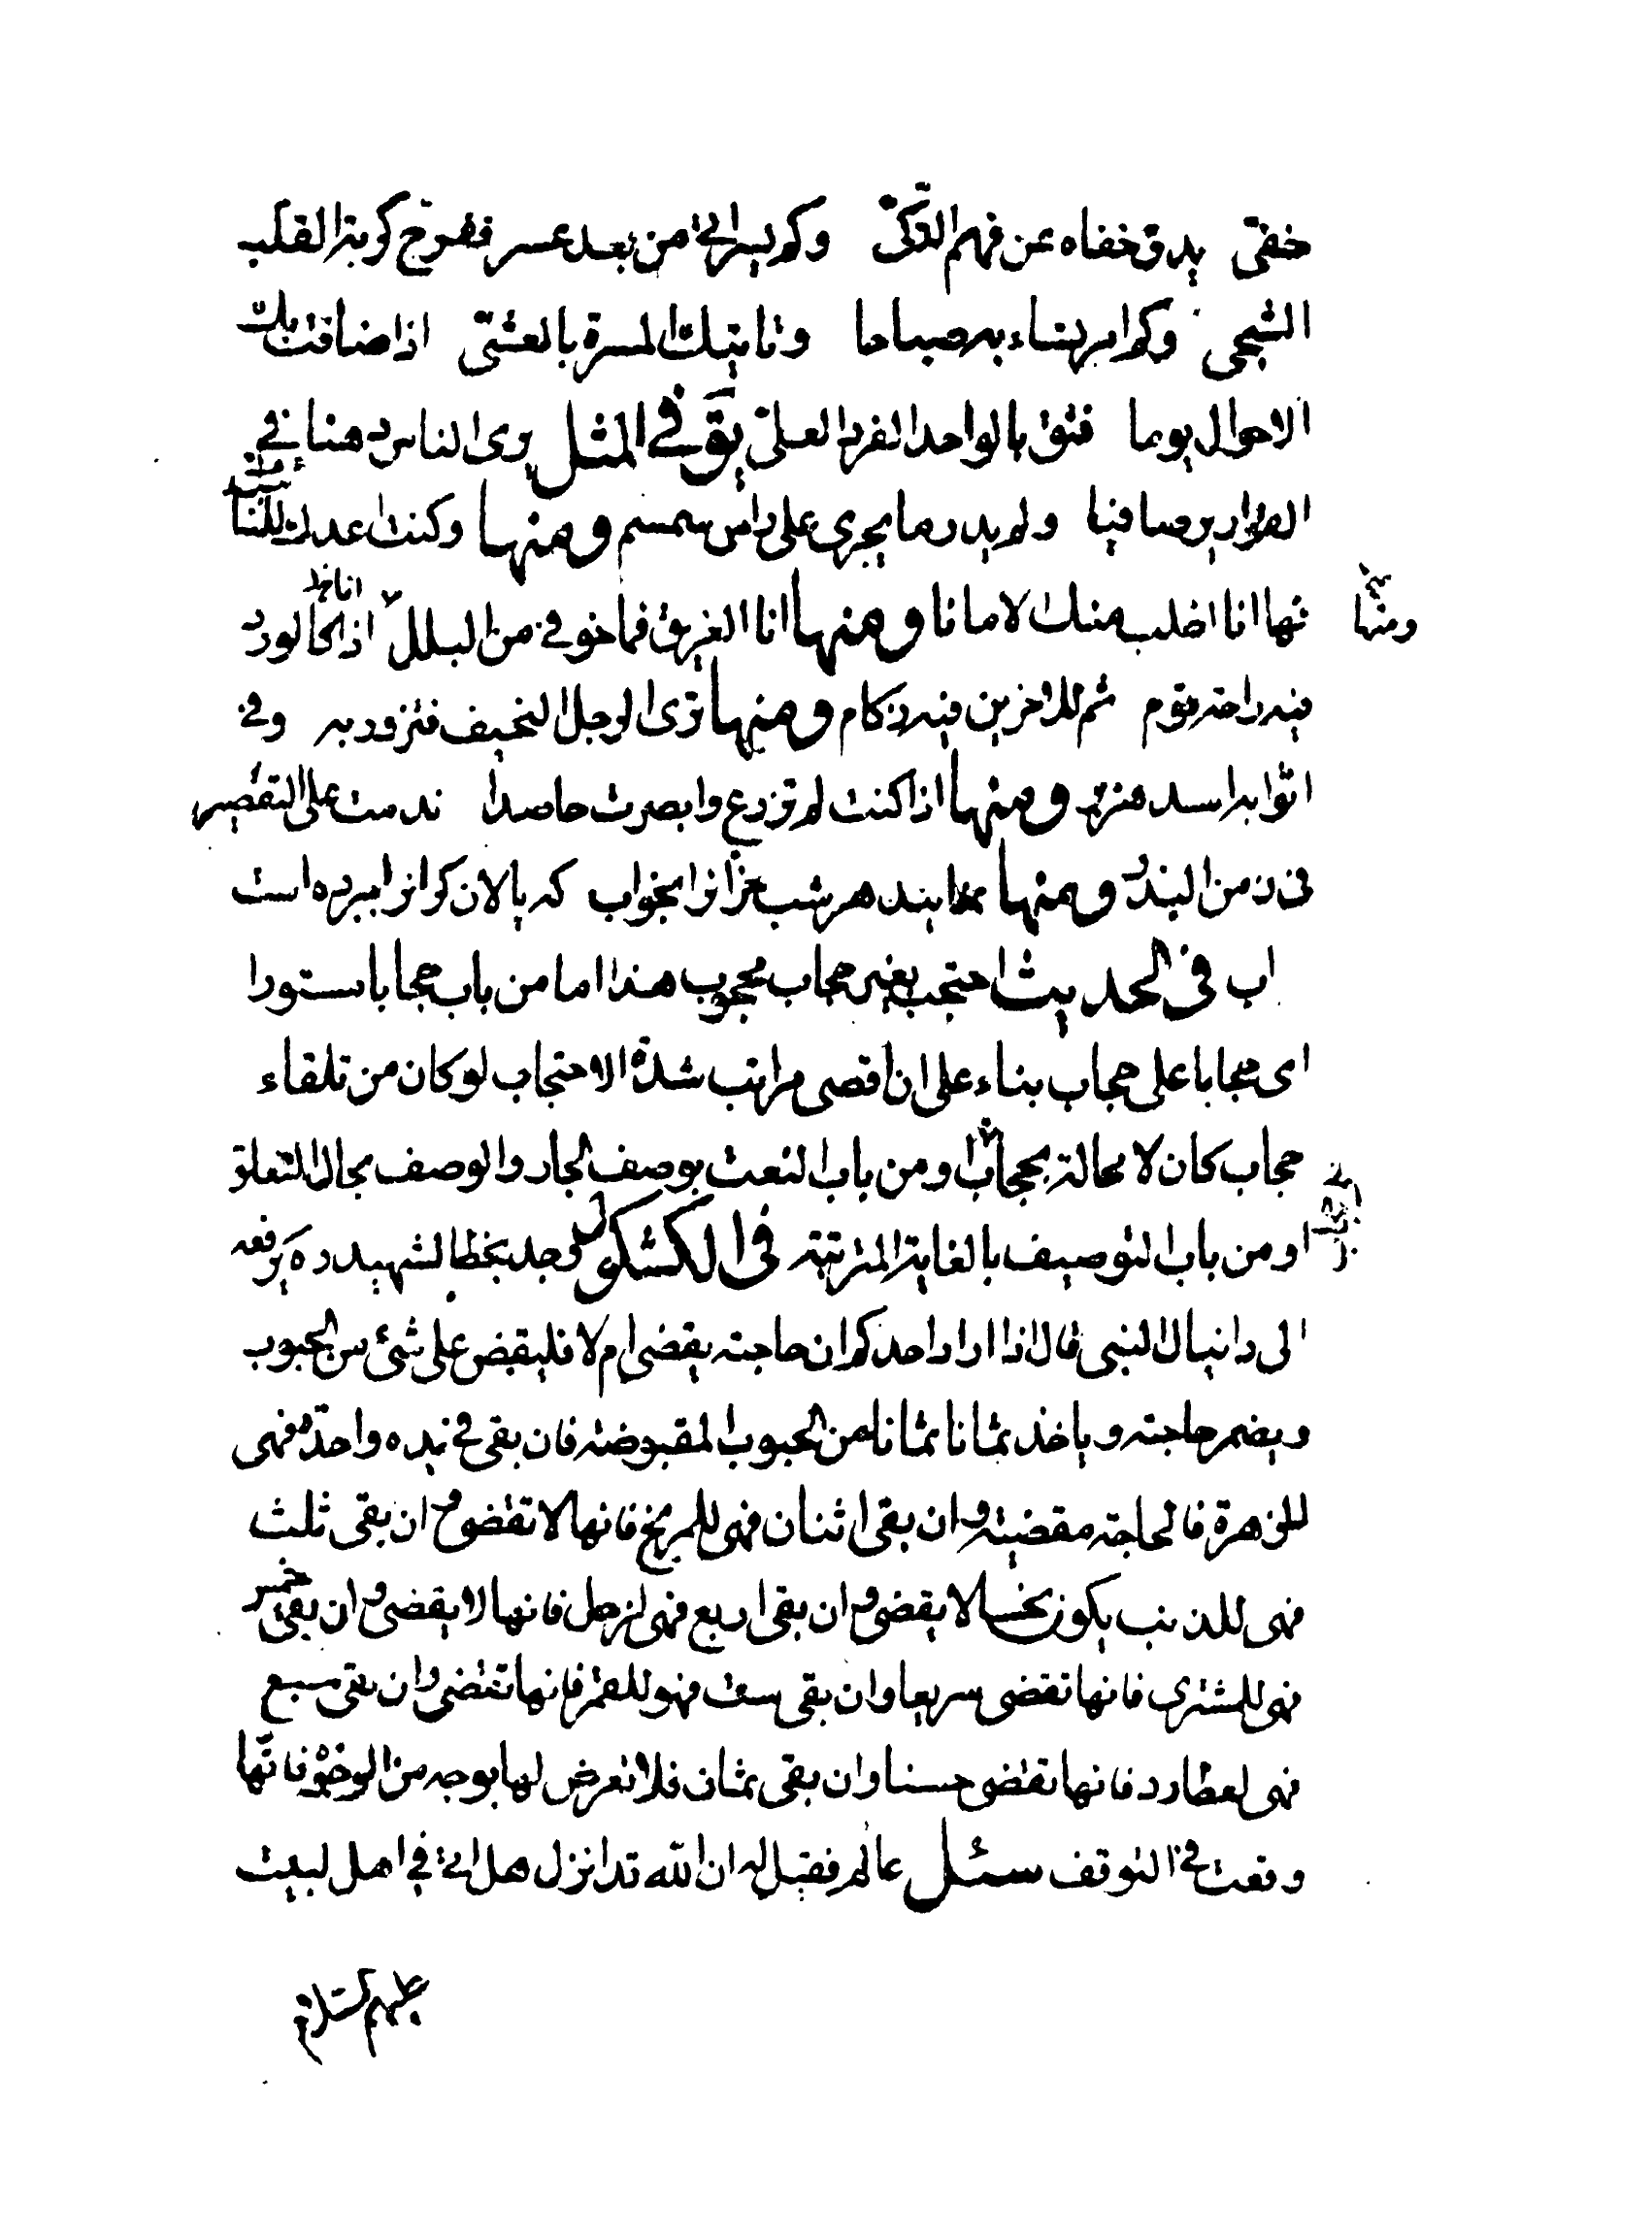 خفی يدق خفاه عن فهم الذكی وكم يسر اتی من بعد عسر ففرج كربة القلب
الشجی وكم امر تساء به صباحا وتاتيك المسرة بالعشی اذا ضاقت بك
الاحوال يوما فثق بالواحد الفرد العلی يق فی المثل يری الناس دهنا فی
القوارير صافيا ولم يدر ما يجری علی راس سمسم ومنها وكنت اعدك للنائبات
ومنها فها انا اطلب منك الامانا ومنها انا الغريق فما خوفی من البلل اذ الحا لورد
فيه راحة قوم ثم للاخرين فيه زكام ومنها تری الرجل النحيف فتزدريه وفی
اثوابه اسد هزبر ومنها اذا كنت لم تزرع وابصرت حاصدا ندمت علی التقصير
فی زمن البذر ومنها نمايند هر شب خزانرا بخواب كه پالان كرانرا ببرده است
اب فی الحديث احتجب بغير حجاب محجوب هذا اما من باب حجابا مستورا
ای حجابا علی حجاب بناء علی ان اقصی مراتب شدة الاحتجاب لو كان من تلقاء
حجاب كان لا محالة بحجاب او من باب النعت بوصف الجار والوصف بحال المتعلق
او من باب التوصيف بالغاية المترتبة فی الكشكول وجد بخط الشهيد ره يرفعه
الی دانيال النبی قال اذا اراد احدكم ان حاجته يقضی ام لا فليقبض علی شئ من الحبوب
ويضمر حاجته وياخذ ثمانا ثمانا من الحبوب المقبوضة فان بقی فی يده واحدة فهی
للزهرة فالحاجة مقضية وان بقی اثنان فهی للمريخ فانها لا تقضی وان بقی ثلث
فهی للذنب يكون نحسا لا يقضی وان بقی اربع فهی لزحل فانها لا يقضی وان بقی خمس
فهی للمشتری فانها تقضی سريعا وان بقی ست فهو للقمر فانها تقضی وان بقی سبع
فهی لعطارد فانها تقضی حسنا وان بقی ثمان فلا تعرض لها بوجه من الوجوه فانها
وقعت فی التوقف سئل عالم فقيل له ان الله قد انزل هل اتی فی اهل البيت
عليهم السلام